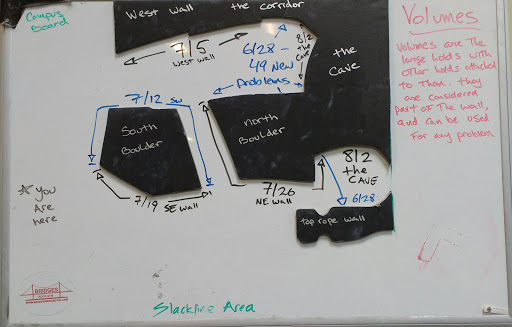 Campus
Board
West wall the corridor
7/5
West wall
6/28 -
49 New
Problems
8/2
the
CAVE
the
Cave
Volumes
Volumes are The
large holds with
other holds attached
to them. they
are considered
part of The wall,
and can be used
For any problem
7/12 SW
South
Boulder
north
Boulder
7/19 SE wall
7/26
NE wall
8/2
the
CAVE
6/28
top rope wall
You
Are
here
BRIDGES
Slackline Area